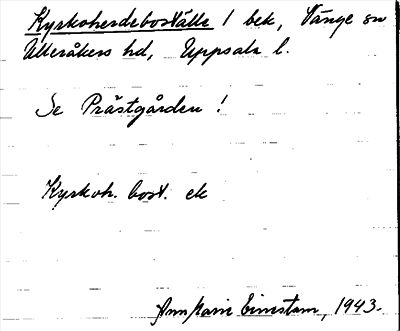 Kyrkoherdeboställe 1 bek, Vänge sn
Ulleråkers hd, Uppsala l.
Se Prästgården !
Kyrkoh. bost. ek
AnnMarie Einestam, 1943.